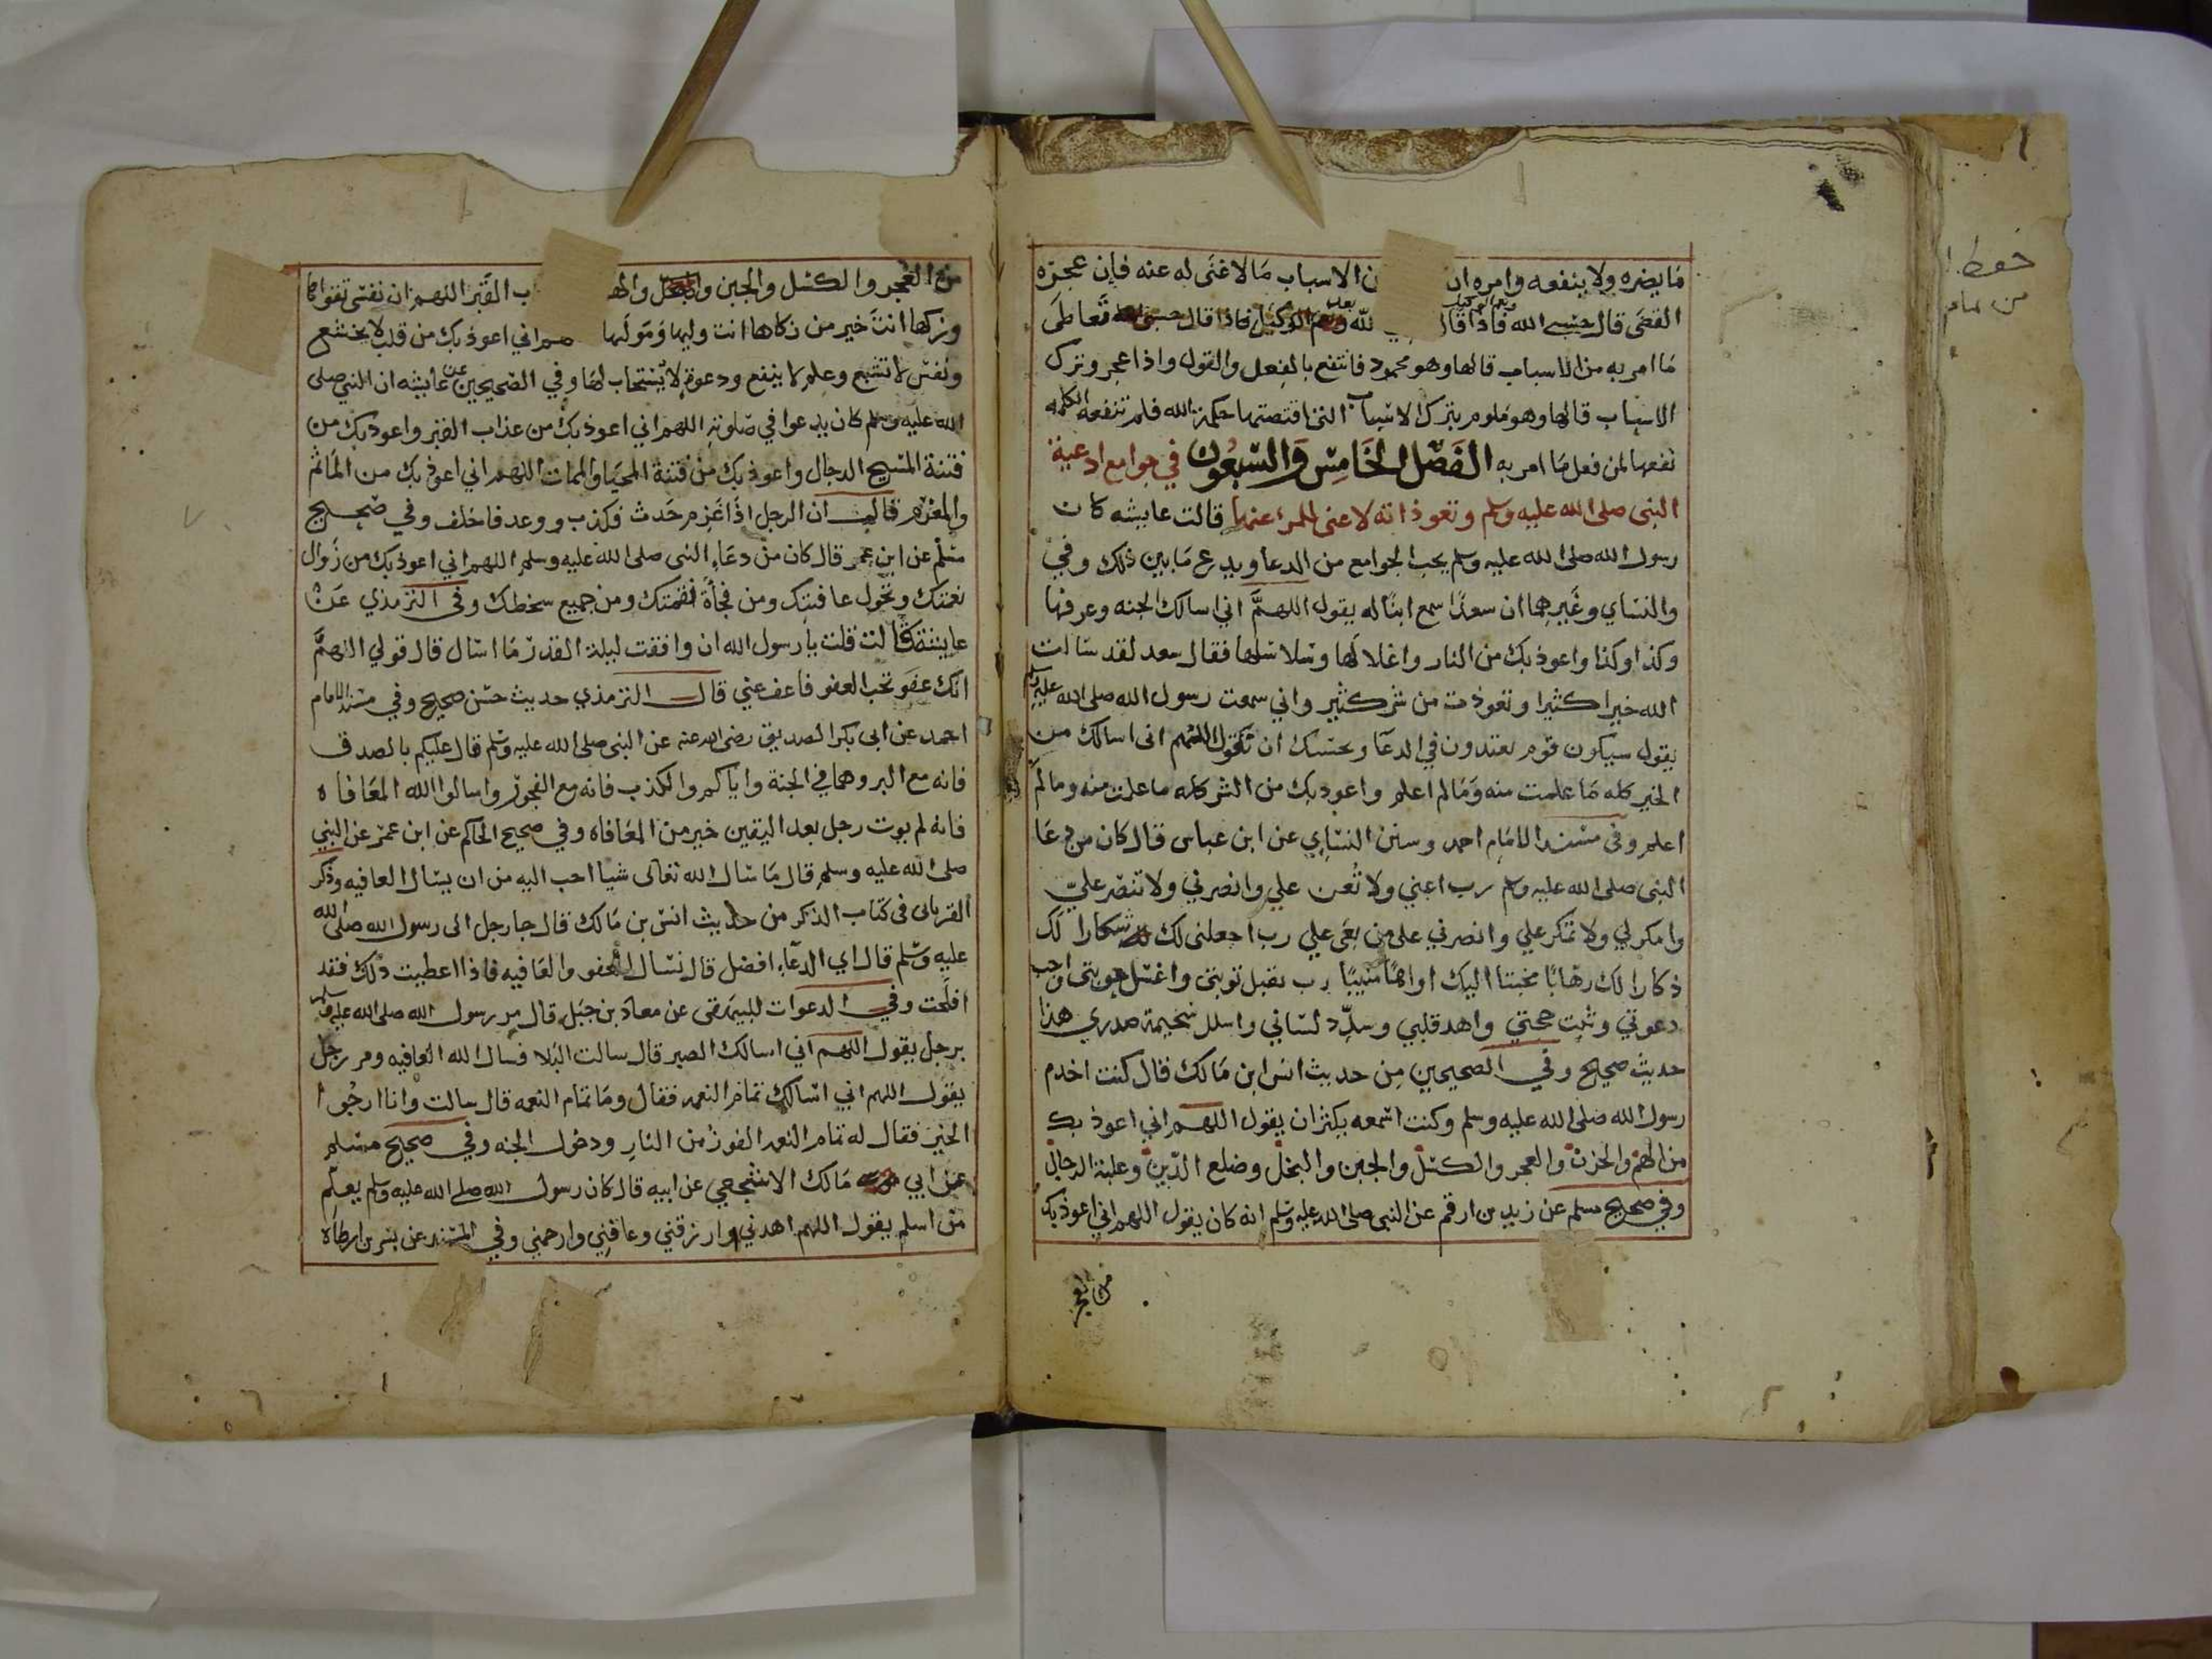 ما يضره ولا ينفعه وامره ان ن الاسباب ما لا غنى له عنه فان عجزه
القضى قال حسبي الله فاذا قال لله ونعم الوكيل فاذا قال حسبي الله تعاطى
ما امر به من الاسباب قالها وهو محمود فانتفع بالفعل والقول واذا عجز وترك
الاسباب قالها وهو ملوم بترك الاسباب التي اقتضتها حكمة الله فلم تنفعه الكلمه
نفعها لمن فعل ما امر به الفصل الخامس والسبعون في جوامع ادعية
النبي صلى الله عليه وسلم وتعوذاته لا غنى للمرء عنها قالت عايشه كان
رسول الله صلى الله عليه وسلم يحب الجوامع من الدعا ويدع ما بين ذلك وفي
والنساي وغيرهما ان سعدا سمع ابنا له يقول اللهم اني اسالك الجنه وغرفها
وكذا وكذا واعوذ بك من النار واغلالها وسلاسلها فقال سعد لقد سالت
الله خيرا كثيرا وتعوذت من شر كثير واني سمعت رسول الله صلى الله عليه وسلم
يقول سيكون قوم يعتدون في الدعا وبحسبك ان تقول اللهم اني اسالك من
الخير كله ما علمت منه وما لم اعلم واعوذ بك من الشر كله ما علمت منه وما لم
اعلم وفي مسند الامام احمد وسنن النساي عن ابن عباس قال كان من دعا
النبي صلى الله عليه وسلم رب اعني ولا تعن علي وانصرني ولا تنصر علي
وامكر لي ولا تمكر علي وانصرني على من بغى علي رب اجعلني لك شكارا لك
ذكارا لك رهابا مخبتا اليك اواها منيبا رب تقبل توبتي واغسل حوبتي واجب
دعوتي وثبت حجتي واهد قلبي وسدد لساني واسلل سخيمة صدري هذا
حديث صحيح وفي الصحيحين من حديث انس ابن مالك قال كنت اخدم
رسول الله صلى الله عليه وسلم وكنت اسمعه يكثر ان يقول اللهم اني اعوذ بك
من الهم والحزن والعجز والكسل والجبن والبخل وضلع الدين وغلبة الرجال
وفي صحيح مسلم عن زيد بن ارقم عن النبي صلى الله عليه وسلم انه كان يقول اللهم اني اعوذ بك
من العجز
من العجز والكسل والجبن والبخل والهـ ب القبر اللهم ان نفسي تقواها
وزكها انت خير من زكاها انت وليها ومولها اني اعوذ بك من قلب لا يخشع
ونفس لا تشبع وعلم لا ينفع ودعوة لا يستجاب لها وفي الصحيحين عن عايشه ان النبي صلى
الله عليه وسلم كان يدعوا في صلوته اللهم اني اعوذ بك من عذاب القبر واعوذ بك من
فتنة المسيح الدجال واعوذ بك من فتنة المحيا والممات اللهم اني اعوذ بك من الماثم
والمغرم قال ان الرجل اذا غرم حدث فكذب ووعد فاخلف وفي صحيح
مسلم عن ابن عمر قال كان من دعاء النبي صلى الله عليه وسلم اللهم اني اعوذ بك من زوال
نعمتك وتحول عافيتك ومن فجأة نقمتك ومن جميع سخطك وفي الترمذي عن
عايشة قالت قلت يا رسول الله ان وافقت ليلة القدر ما اسال قال قولي اللهم
انك عفو تحب العفو فاعف عني قال الترمذي حديث حسن صحيح وفي مسند الامام
احمد عن ابي بكر الصديق رضي الله عنه عن النبي صلى الله عليه وسلم قال عليكم بالصدق
فانه مع البر وهما في الجنة واياكم والكذب فانه مع الفجور واسالوا الله المعافاه
فانه لم يوت رجل بعد اليقين خير من المعافاه وفي صحيح الحاكم عن ابن عمر عن النبي
صلى الله عليه وسلم قال ما سال الله تعالى شيا احب اليه من ان يسال العافيه وذكر
الفريابي في كتاب الذكر من حديث انس بن مالك قال جا رجل الى رسول الله صلى الله
عليه وسلم قال اي الدعاء افضل قال نسال العفو والعافيه فاذا اعطيت ذلك فقد
افلحت وفي الدعوات للبيهقي عن معاذ بن جبل قال مر رسول الله صلى الله عليه وسلم
برجل يقول اللهم اني اسالك الصبر قال سالت البلا فسال الله العافيه ومر رجل
يقول اللهم اني اسالك تمام النعمه فقال وما تمام النعمه قال سالت وانا ارجوا
الخير فقال له تمام النعمه الفوز من النار ودخول الجنه وفي صحيح مسلم
عن ابي مالك الاشجعي عن ابيه قال كان رسول الله صلى الله عليه وسلم يعلم
من اسلم يقول اللهم اهدني وارزقني وعافني وارحمني وفي المسند عن بسر بن ارطاه